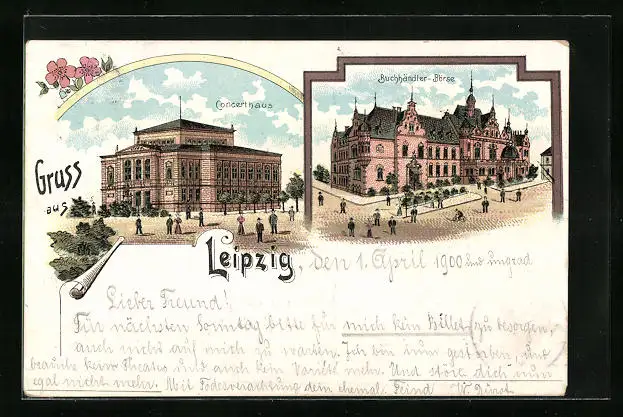 Concerthaus
Buchhändler-Börse
Gruss
aus
Leipzig, den 1. April 1900
Lieber Freund!
Für nächsten Sonntag bitte für mich kein Billet zu besorgen,
auch nicht auf mich zu warten. Ich bin nun gestorben, und
brauche kein Theater und auch kein Varieté mehr. Und störe dich nun
egal nicht mehr. Mit Todesverachtung dein ehemal. Feind W.